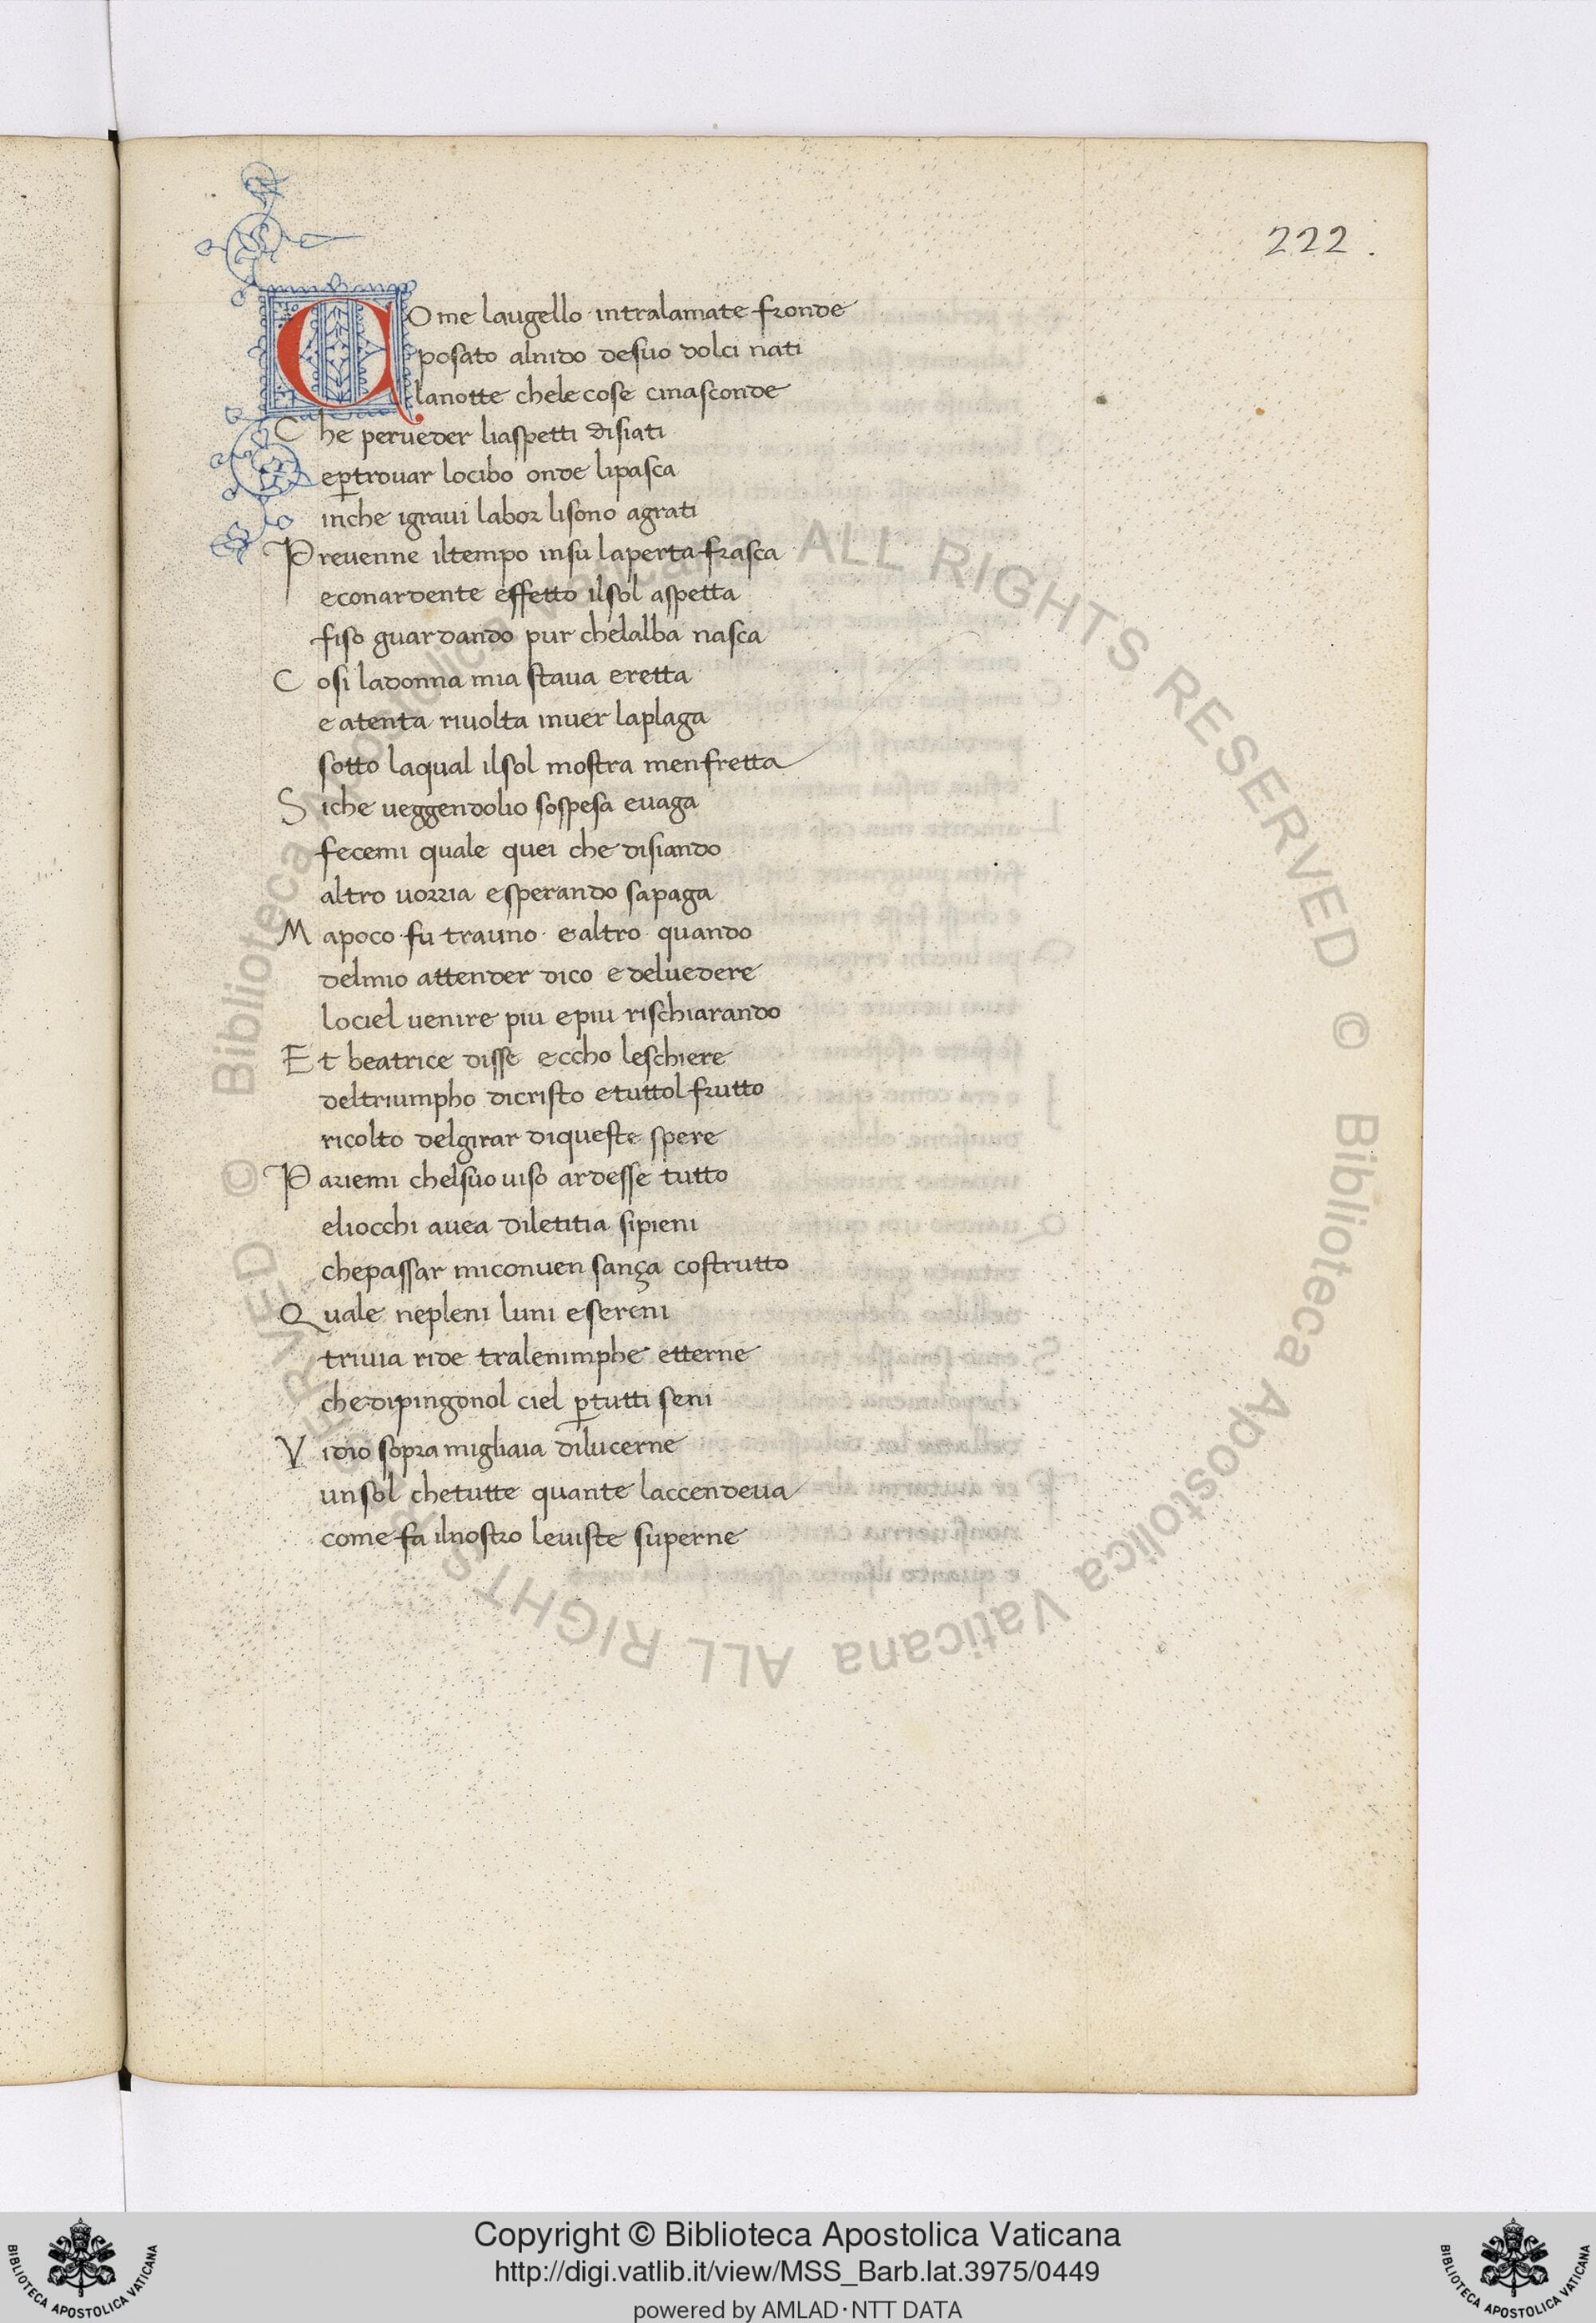 222.
COme laugello intralamate fronde
posato alnido desuo dolci nati
lanotte chele cose cinasconde
C he perueder liaspetti disiati
eꝑtrouar locibo onde lipasca
inche igraui labor lisono agrati
P reuenne iltempo insu laperta frasca
econardente effetto ilsol aspetta
fiso guardando pur chelalba nasca
C osi ladonna mia staua eretta
e atenta riuolta inuer laplaga
sotto laqual ilsol mostra menfretta
S iche ueggendolio sospesa euaga
fecemi quale quei che disiando
altro uorria esperando sapaga
M apoco fu trauno ealtro quando
delmio attender dico edeluedere
lociel uenire piu epiu rischiarando
E t beatrice disse eccho leschiere
deltriumpho dicristo etuttol frutto
ricolto delgirar diqueste spere
P ariemi chelsuo uiso ardesse tutto
eliocchi auea diletitia sipieni
chepassar miconuen sança costrutto
Q uale nepleni luni esereni
triuia ride tralenimphe etterne
chedipingonol ciel ꝑtutti seni
V idio sopra migliaia dilucerne
unsol chetutte quante laccendeua
come fa ilnostro leuiste superne
© Biblioteca Apostolica Vaticana ALL RIGHTS RESERVED © Biblioteca Apostolica Vaticana ALL RIGHTS RESERVED
Copyright © Biblioteca Apostolica Vaticana
http://digi.vatlib.it/view/MSS_Barb.lat.3975/0449
powered by AMLAD·NTT DATA
BIBLIOTECA APOSTOLICA VATICANA
BIBLIOTECA APOSTOLICA VATICANA